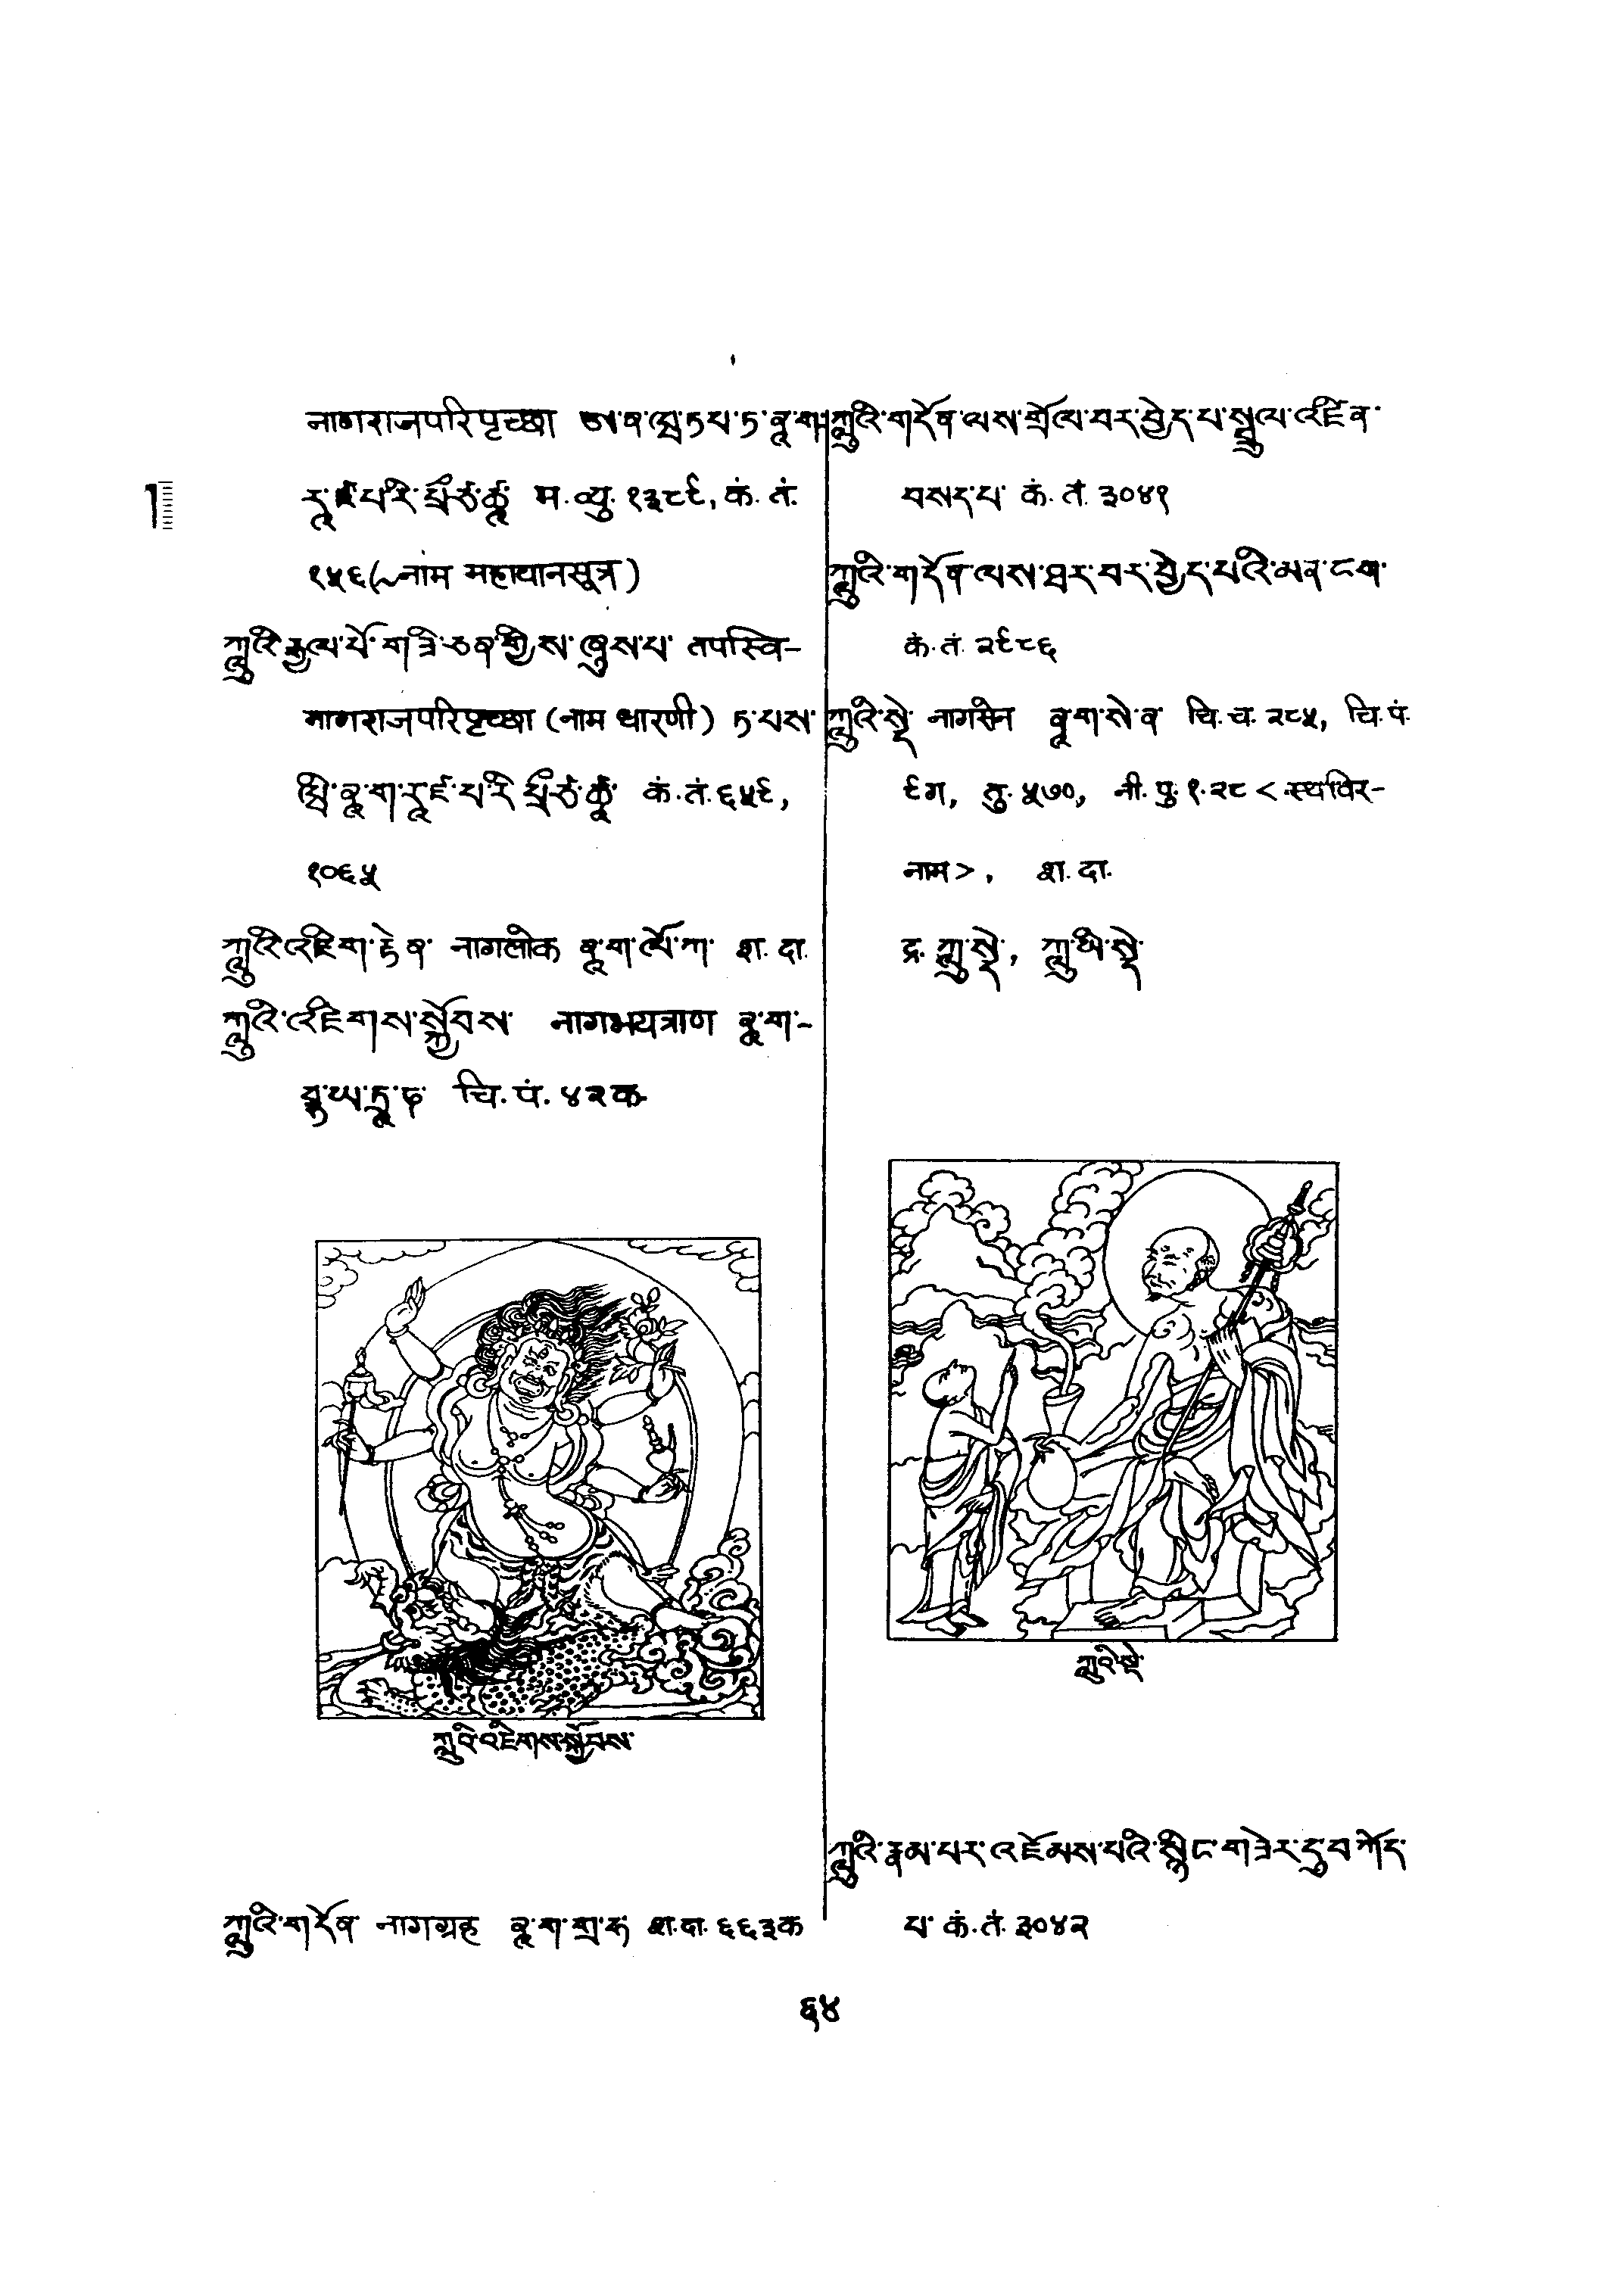 नागराजपरिपृच्छा ཨ་ན་ཝ་ཏཔ་ཏ་ནཱ་ག-
རཱ་ཛ་པ་རི་པྲྀཙ་ཚཱ म. व्यु. १३८९, कं. तं.
१५६(~नाम महायानसूत्र)
ཀླུའི་རྒྱལ་པོ་གཟི་ཅན་གྱིས་ཞུས་པ་ तपस्वि-
नागराजपरिपृच्छा (नाम धारणी) ཏ་པས་
ཝི་ནཱ་ག་རཱ་ཛ་པ་རི་པྲྀཙ་ཚཱ कं. तं. ६५९,
१०६५
ཀླུའི་འཇིག་རྟེན་ नागलोक ནཱ་ག་ལོ་ཀ་ श. दा.
ཀླུའི་འཇིགས་སྐྱོབས་ नागभयत्राण ནཱ་ག་-
བྷ་ཡ་ཏྲཱ་ཎ་ चि. पं. ४२क
ཀླུའི་འཇིགས་སྐྱོབས་
ཀླུའི་གདོན་ नागग्रह ནཱ་ག་གྲ་ཧ श. दा. ६६३क
ཀླུའི་གདོན་ལས་གྲོལ་བར་བྱེད་པ་སྦྲུལ་འཛིན་
བསད་པ་ कं. तं. ३०४१
ཀླུའི་གདོན་ལས་ཐར་བར་བྱེད་པའི་མན་ངག་
कं. तं. २९८६
ཀླུའི་སྡེ་ नागसेन ནཱ་ག་སེ་ན चि. च. २८५, चि. पं.
९ग, तु. ५७०, नी. पु. १.२८ < स्थविर-
नाम >, श. दा.
द्र. ཀླུ་སྡེ་, ཀླུ་ཡི་སྡེ་
ཀླུའི་སྡེ་
ཀླུའི་རྣམ་པར་འཇོམས་པའི་སྙིང་གཟེར་དུ་བཀོད་
པ་ कं. तं. ३०४२
६४